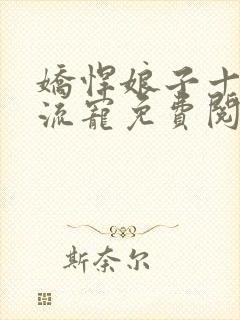 嬌悍娘子十
流寵免費閱
斯奈尔